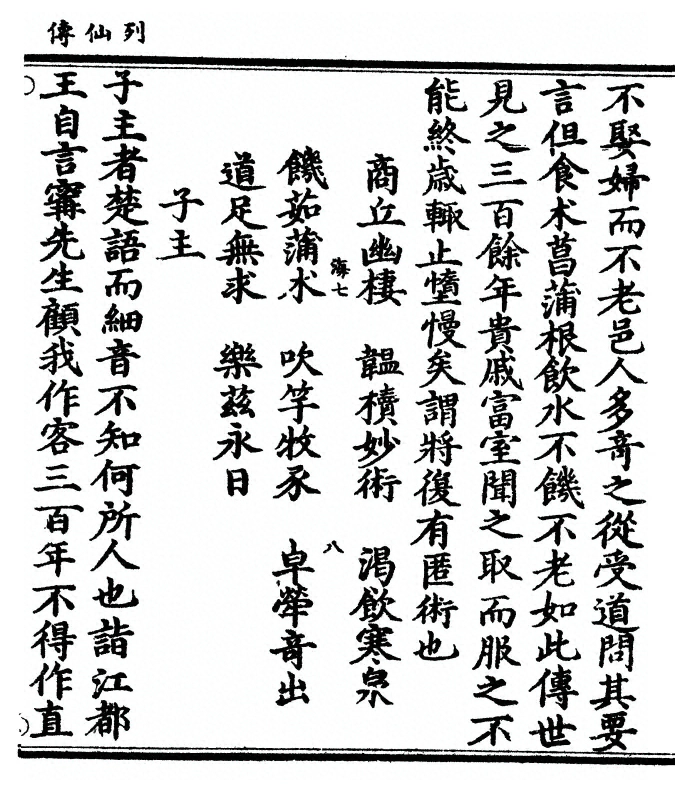 列仙傳
不娶婦而不老邑人多竒之從受道問其要
言但食术菖蒲根飲水不饑不老如此傳世
見之三百餘年貴戚富室聞之取而服之不
能終歲輒止墮慢矣謂將復有匿術也
商丘幽棲 韞櫝妙術 渴飲寒泉
海七 八
饑茹蒲术 吹竽牧豕 卓犖竒出
道足無求 樂茲永日
子主
子主者楚語而細音不知何所人也詣江都
王自言寗先生顧我作客三百年不得作直